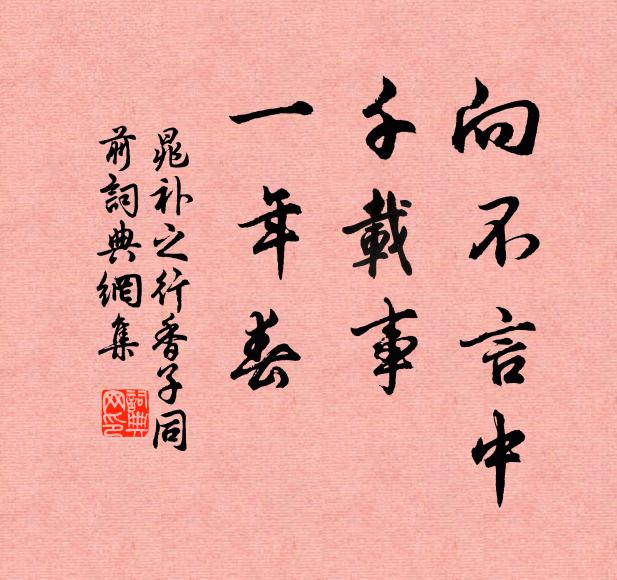 向不言中
千載事
一年春
晁补之行香子同
前詞典網集
詞典
网印